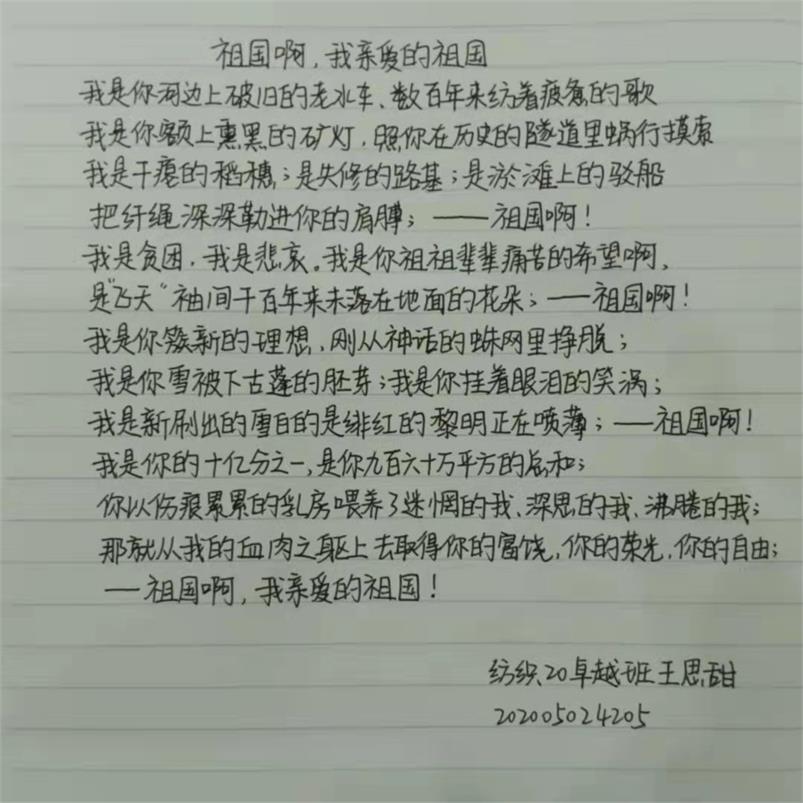 祖国啊，我亲爱的祖国
我是你河边上破旧的老水车、数百年来纺着疲惫的歌
我是你额上熏黑的矿灯，照你在历史的隧道里蜗行摸索
我是干瘪的稻穗；是失修的路基；是淤滩上的驳船
把纤绳深深勒进你的肩膊；——祖国啊！
我是贫困，我是悲哀。我是你祖祖辈辈痛苦的希望啊，
是“飞天”袖间千百年来未落在地面的花朵；——祖国啊！
我是你簇新的理想，刚从神话的蛛网里挣脱；
我是你雪被下古莲的胚芽；我是你挂着眼泪的笑涡；
我是新刷出的雪白的是绯红的黎明正在喷薄；——祖国啊！
我是你的十亿分之一，是你九百六十万平方的总和；
你以伤痕累累的乳房喂养了迷惘的我、深思的我、沸腾的我；
那就从我的血肉之躯上去取得你的富饶，你的荣光，你的自由；
——祖国啊，我亲爱的祖国！
纺织20卓越班王思甜
202005024205